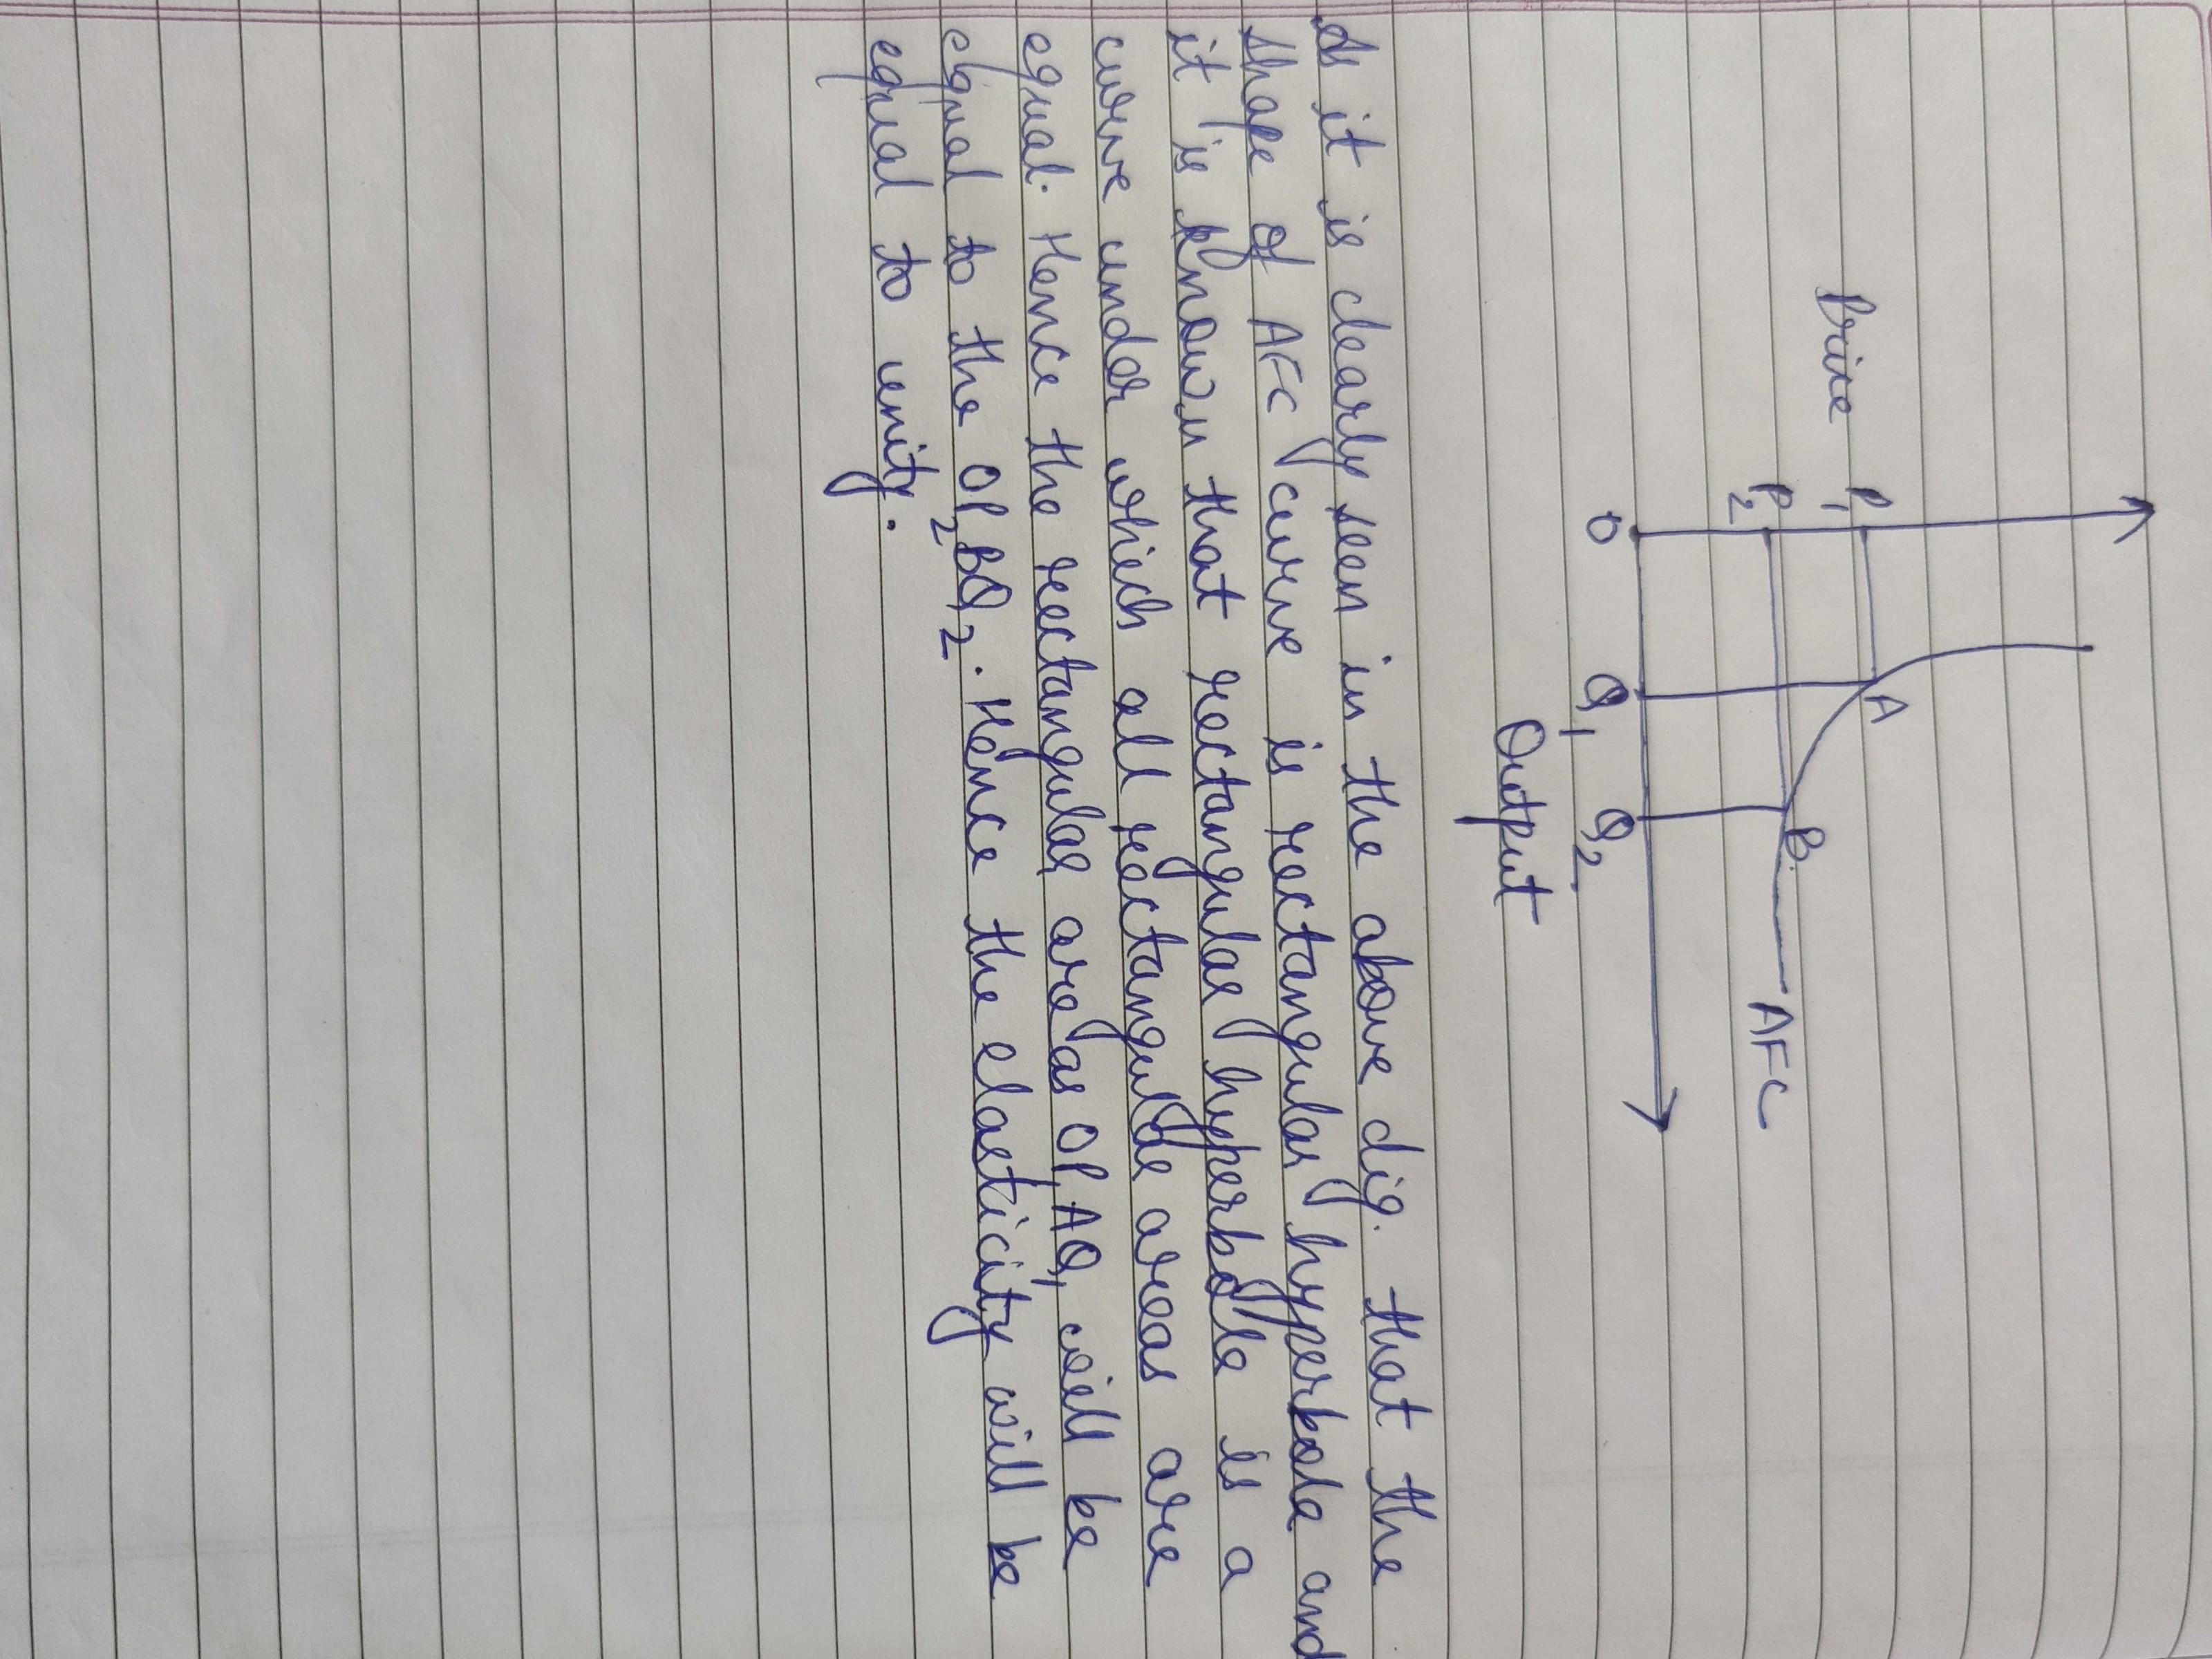 Price
P1
P2
A
B
AFC
O
Q1
Q2
Output
As it is clearly seen in the above dig. that the
shape of AFC curve is rectangular hyperbola and
it is known that rectangular hyperbola is a
curve under which all rectangular areas are
equal. Hence the rectangular area as OP1AQ1 will be
equal to the OP2BQ2. Hence the elasticity will be
equal to unity.